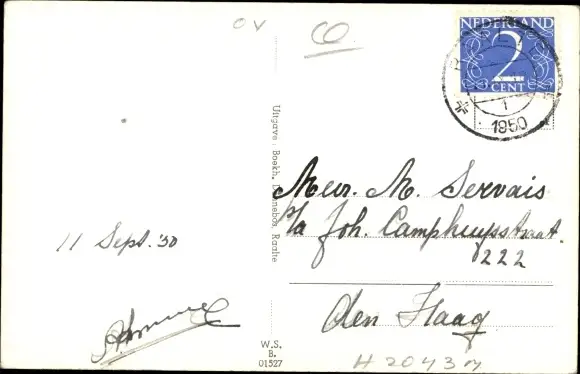 OV
CO.
NEDERLAND
2
CENT
1
1950
Uitgave: Boekh. Danneboh, Raalte
Mevr. M. Servais
p/a Joh. Camphuysstraat
222
den Haag
11 Sept. '50
W.S.
B.
01527
H 2043 m